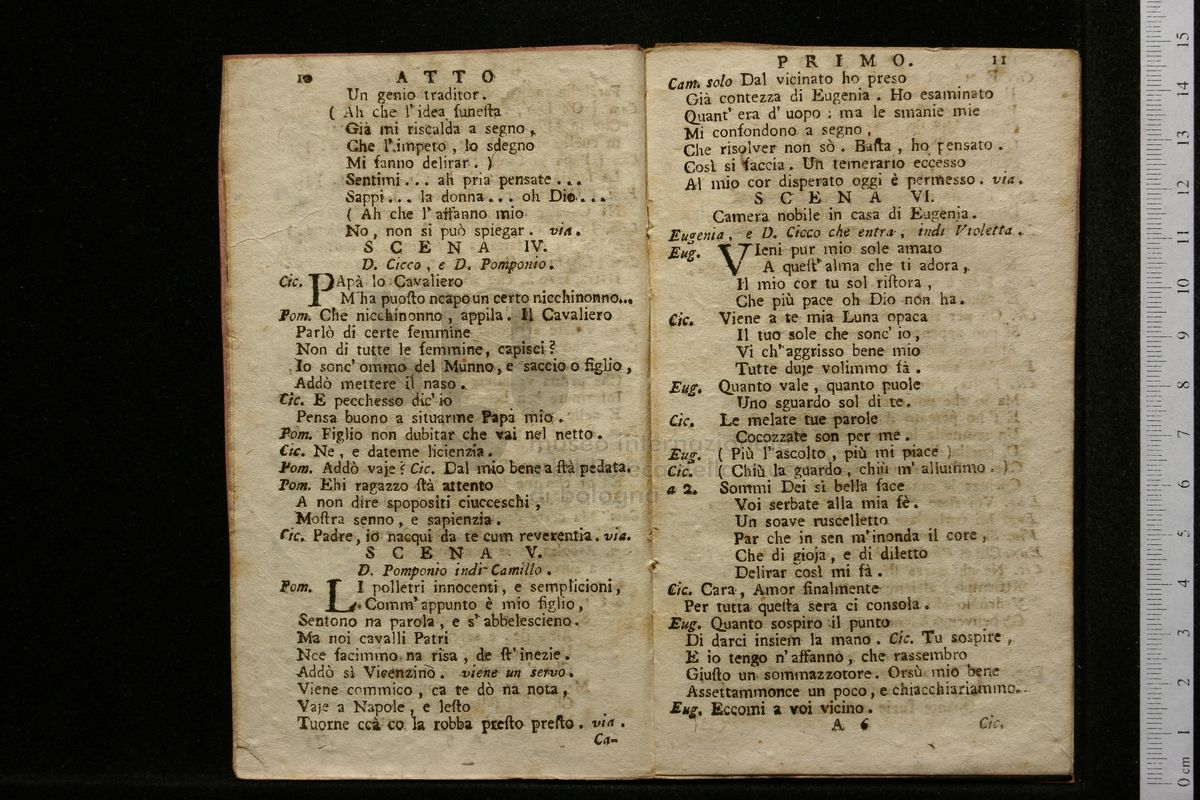 10 ATTO
Un genio traditor.
( Ah che l'idea funeſta
Già mi riscalda a segno,
Che l'impeto, lo sdegno
Mi fanno delirar. )
Sentimi... ah pria pensate...
Sappi... la donna... oh Dio...
( Ah che l'affanno mio
No, non si può spiegar. via.
SCENA IV.
D. Cicco, e D. Pomponio.
Cic. PApà lo Cavaliero
M'ha puoſto ncapo un certo nicchinonno...
Pom. Che nicchinonno, appila. Il Cavaliero
Parlò di certe femmine
Non di tutte le femmine, capisci?
Io sonc'ommo del Munno, e saccio o figlio,
Addò mettere il naso.
Cic. E pecchesso dic'io
Pensa buono a situarme Papà mio.
Pom. Figlio non dubitar che vai nel netto.
Cic. Ne, e dateme licienzia.
Pom. Addò vaje? Cic. Dal mio bene a ſtà pedata.
Pom. Ehi ragazzo ſtà attento
A non dire spropositi ciucceschi,
Moſtra senno, e sapienzia.
Cic. Padre, io nacqui da te cum reverentia. via.
SCENA V.
D. Pomponio indi Camillo.
Pom. LI polletri innocenti, e semplicioni,
Comm'appunto è mio figlio,
Sentono na parola, e s'abbelescieno.
Ma noi cavalli Patri
Nce facimmo na risa, de ſt'inezie.
Addò si Vicenzinò. viene un servo.
Viene commico, ca te dò na nota,
Vaje a Napole, e leſto
Tuorne ccà co la robba preſto preſto. via.
Ca-
PRIMO. 11
Cam. solo Dal vicinato ho preso
Già contezza di Eugenia. Ho esaminato
Quant'era d'uopo: ma le smanie mie
Mi confondono a segno,
Che risolver non sò. Baſta, ho pensato.
Così si faccia. Un temerario eccesso
Al mio cor disperato oggi è permesso. via.
SCENA VI.
Camera nobile in casa di Eugenia.
Eugenia, e D. Cicco che entra, indi Violetta.
Eug. VIeni pur mio sole amato
A queſt'alma che ti adora,
Il mio cor tu sol riſtora,
Che più pace oh Dio non ha.
Cic. Viene a te mia Luna opaca
Il tuo sole che sonc'io,
Vi ch'aggrisso bene mio
Tutte duje volimmo fà.
Eug. Quanto vale, quanto puole
Uno sguardo sol di te.
Cic. Le melate tue parole
Cocozzate son per me.
Eug. ( Più l'ascolto, più mi piace )
Cic. ( Chiù la guardo, chiù m'allummo. )
a 2. Sommi Dei sì bella face
Voi serbate alla mia fè.
Un soave ruscelletto
Par che in sen m'inonda il core,
Che di gioja, e di diletto
Delirar così mi fà.
Cic. Cara, Amor finalmente
Per tutta queſta sera ci consola.
Eug. Quanto sospiro il punto
Di darci insiem la mano. Cic. Tu sospire,
E io tengo n'affanno, che rassembro
Giuſto un sommazzotore. Orsù mio bene
Assettammonce un poco, e chiacchiariammo.
Eug. Eccomi a voi vicino.
A 6 Cic.